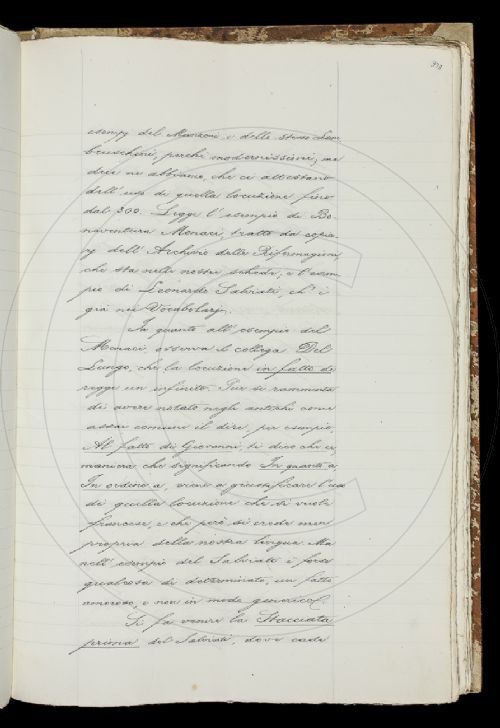 esempj del Manzoni e dello stesso Lam
bruschini, perchè modernissimi; ma
dice ne abbiamo, che ci attestano
dell'uso di quella locuzione fino
dal 300. Legge l'esempio di Bo-
naventura Monaci, tratto da copia
dell'Archivio delle Riformagioni
che sta nelle nostre schede; e l'esem-
pio di Leonardo Salviati, ch'è
già nei Vocabolarj.
In quanto all'esempio del
Monaci, osserva il collega Del
Lungo, che la locuzione in fatto di
regge un infinito. Pur si rammenta
di avere notato negli antichi come
assai comune il dire, per esempio,
Al fatto di Giovanni, ti dico che ec.
maniera che significando In quanto a,
In ordine a, viene a giustificare l'uso
di quella locuzione che si vuole
francese, e che però si crede men
propria della nostra lingua. Ma
nell'esempio del Salviati è forse
qualcosa di determinato, un fatto
amoroso, e non in modo generico.
Si fa venire la Stacciata
prima del Salviati, dove cade